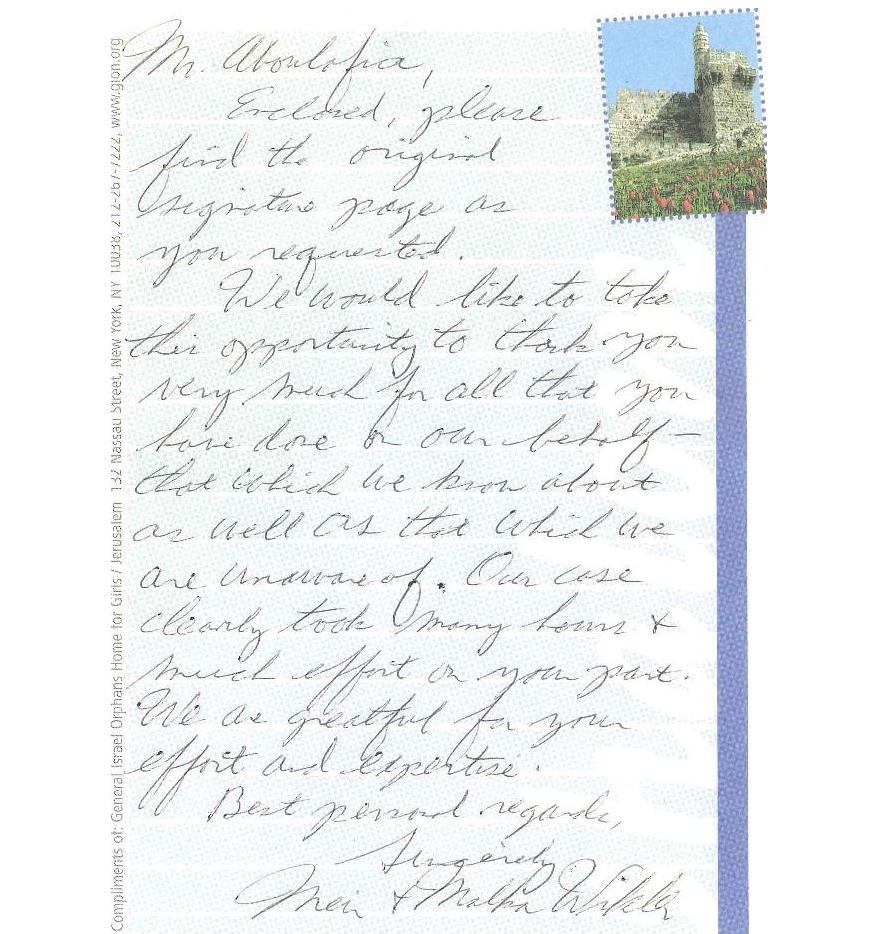 Mr. Aboulafia,
Enclosed, please
find the original
signature page as
you requested.
We would like to take
this opportunity to thank you
very much for all that you
have done on our behalf—
that which we know about
as well as that which we
are unaware of. Our case
clearly took many hours &
much effort on your part.
We are greatful for your
effort and expertise.
Best personal regards,
Sincerely
Meir & Malka Wikler
Compliments of: General Israel Orphans Home for Girls / Jerusalem 132 Nassau Street, New York, NY 10038, 212-267-7222, www.gion.org